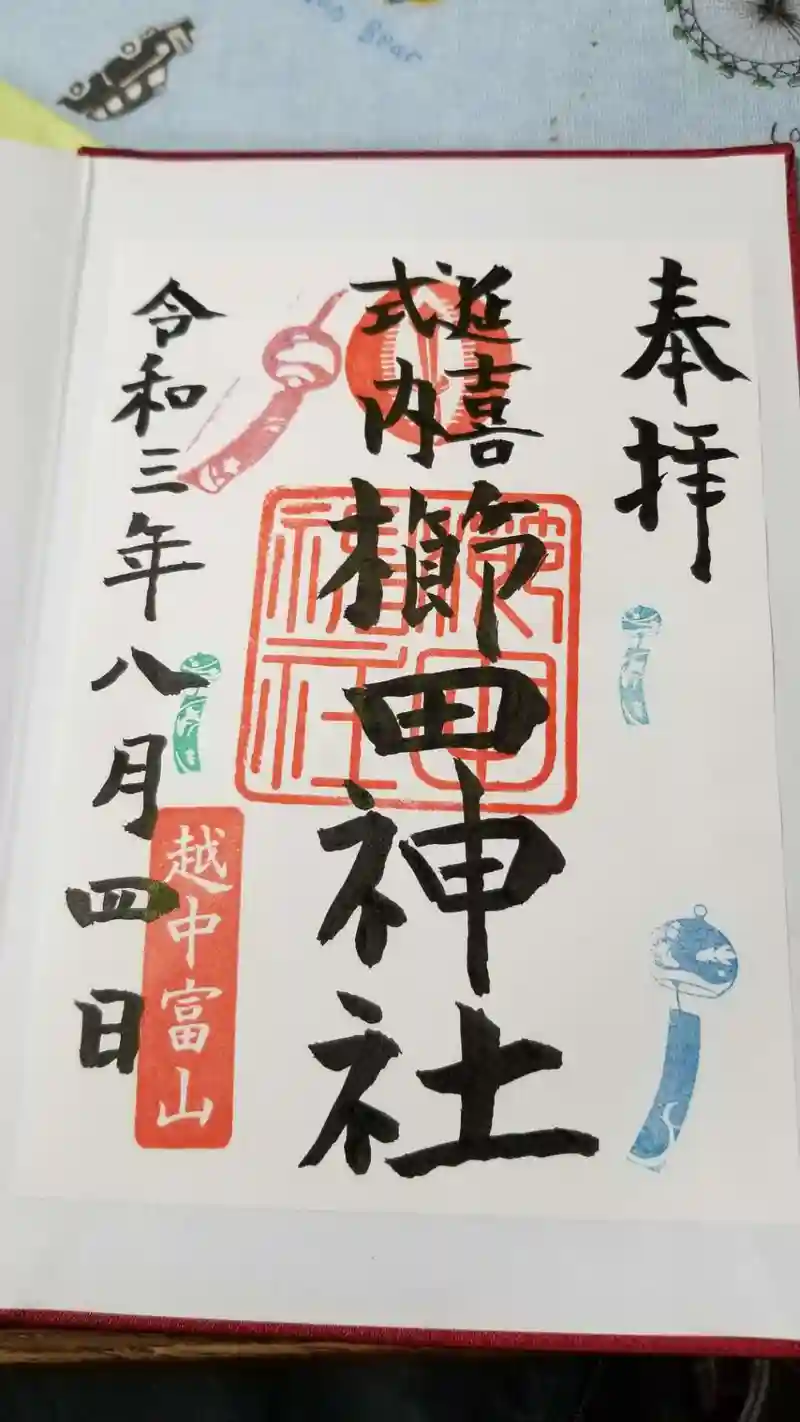 奉拝
延喜
式内
櫛田神社
櫛田
神社
令和三年八月四日
越中富山
Bear